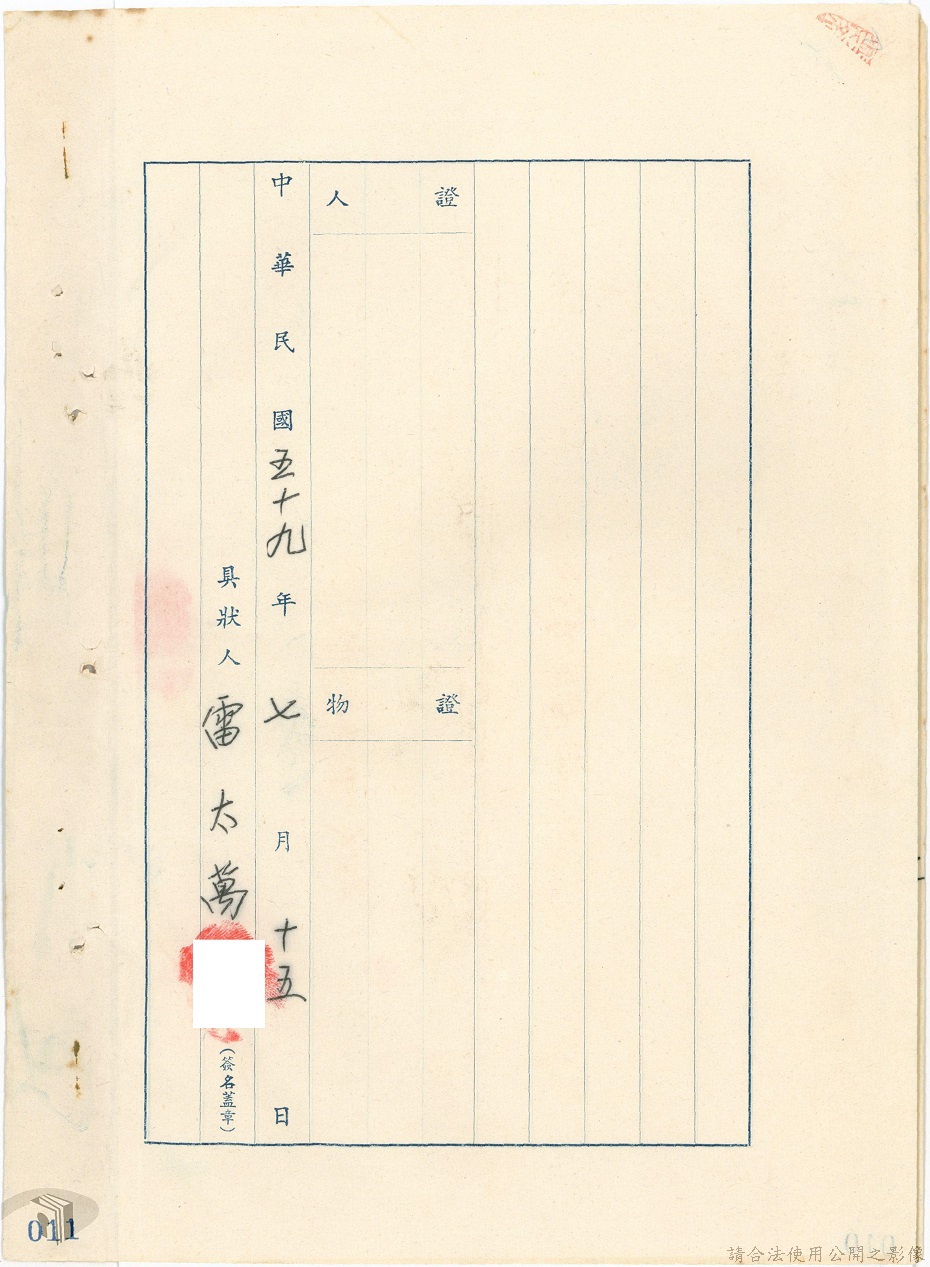 證人
證物
中華民國五十九年七月十五日
具狀人雷太萬(簽名蓋章)
011
010
請合法使用公開之影像